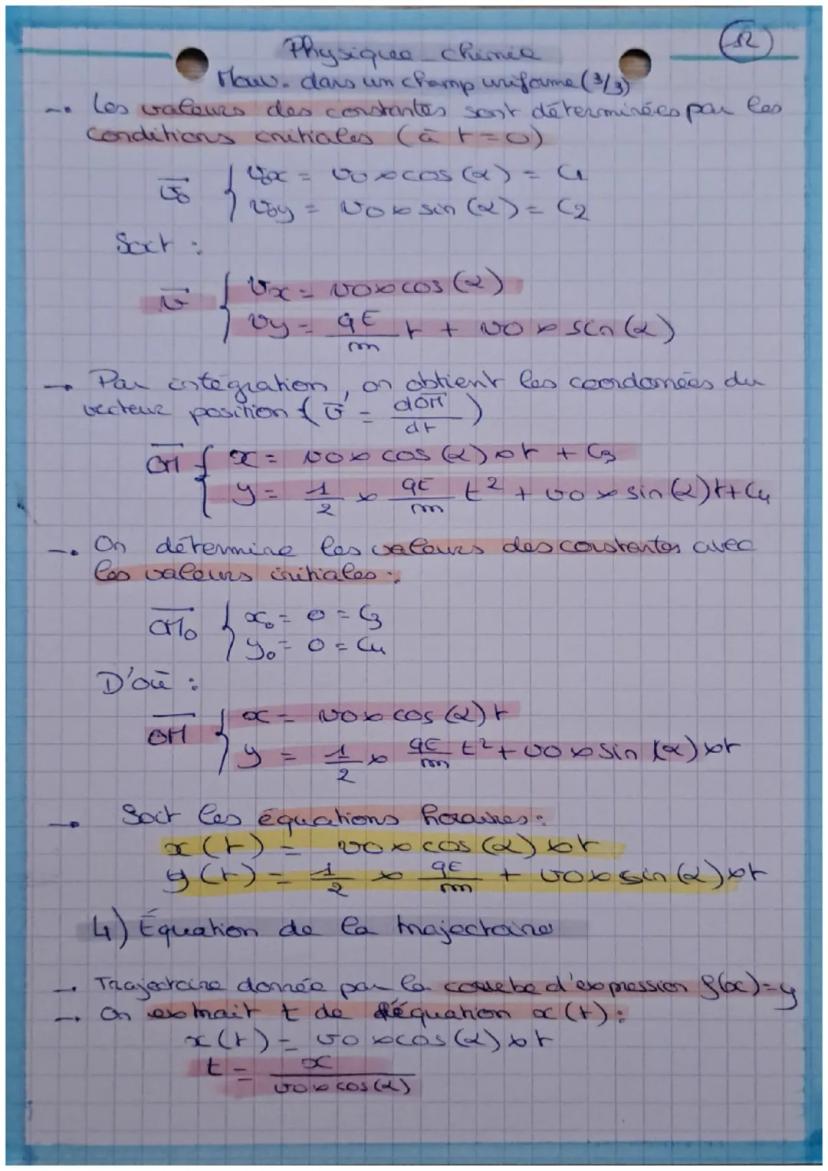 12
Physique-chimie
Mouv. dans un champ uniforme (3/3)
→ Les valeurs des constantes sont déterminées par les
conditions initiales (à t=0)
v₀ { v₀x = v₀ × cos (α) = C1
v₀y = v₀ × sin (α) = C2
Soit :
v { vx = v₀ × cos (α)
vy = qE/m t + v₀ × sin (α)
→ Par intégration, on obtient les coordonnées du
vecteur position (v = dOM/dt)
OM { x = v₀ × cos (α) × t + C3
y = 1/2 × qE/m t² + v₀ × sin (α) t + C4
→ On détermine les valeurs des constantes avec
les valeurs initiales :
OM₀ { x₀ = 0 = C3
y₀ = 0 = C4
D'où :
OM { x = v₀ × cos (α) t
y = 1/2 × qE/m t² + v₀ × sin (α) × t
→ Soit les équations horaires :
x (t) = v₀ × cos (α) × t
y (t) = 1/2 × qE/m + v₀ × sin (α) × t
4) Équation de la trajectoire
→ Trajectoire donnée par la courbe d'expression f(x)=y
→ On extrait t de l'équation x (t) :
x (t) = v₀ × cos (α) × t
t = x/v₀ × cos (α)